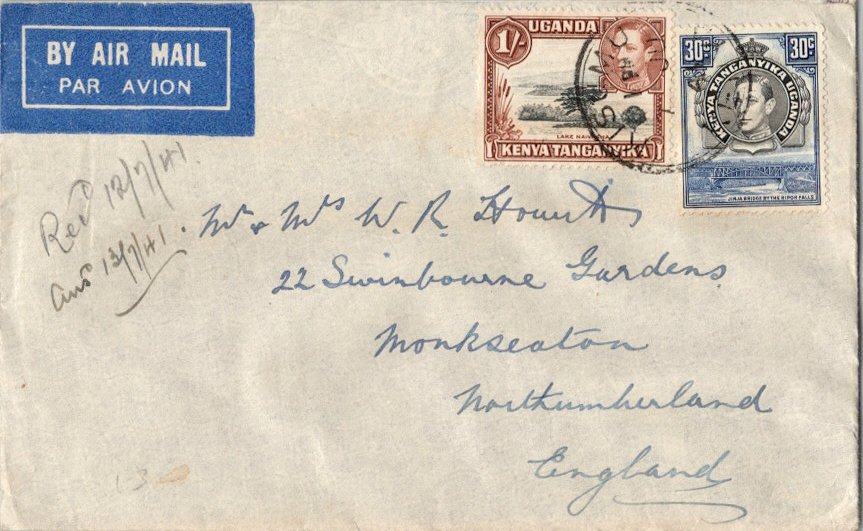 BY AIR MAIL
PAR AVION
UGANDA
1/-
LAKE NAIVASHA
KENYA TANGANYIKA
30c 30c
KENYA TANGANYIKA UGANDA
JINJA BRIDGE BY THE RIPON FALLS
KISUMU
Recd 12/7/41.
Ansd 13/7/41.
Mr & Mrs W. R. 
22 Swinbourne Gardens
Monkseaton
Northumberland
England
13